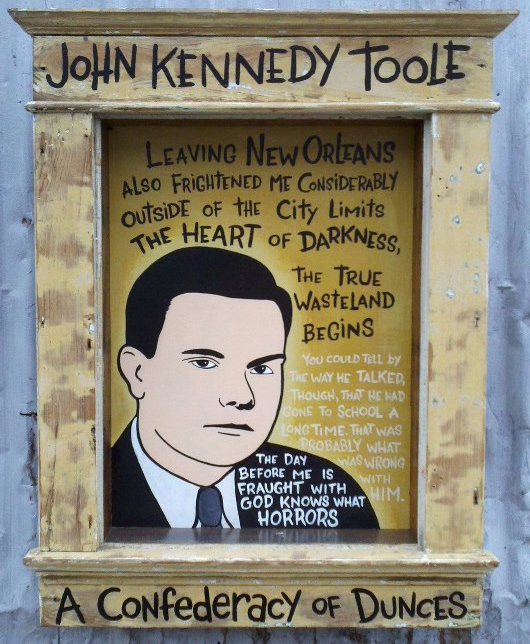 JOHN KENNEDY TOOLE
LEAVING NEW ORLEANS
ALSO FRIGHTENED ME CONSIDERABLY
OUTSIDE OF THE CITY LIMITS
THE HEART OF DARKNESS,
THE TRUE
WASTELAND
BEGINS
YOU COULD TELL BY
THE WAY HE TALKED,
THOUGH, THAT HE HAD
GONE TO SCHOOL A
LONG TIME. THAT WAS
PROBABLY WHAT
WAS WRONG
WITH
HIM.
THE DAY
BEFORE ME IS
FRAUGHT WITH
GOD KNOWS WHAT
HORRORS
A CONFEDERACY OF DUNCES